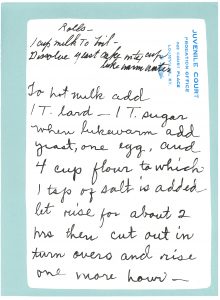 Rolls -
1 cup milk To hot -
Disolve yeast cake into cup
luke warm water
JUVENILE COURT
PROBATION OFFICE
To hot milk add
1 T. lard - 1 T. sugar
when lukewarm add
yeast, one egg, and
4 cup flour to which
1 tsp of salt is added
let rise for about 2
hrs then cut out in
turn overs and rise
one more hour -